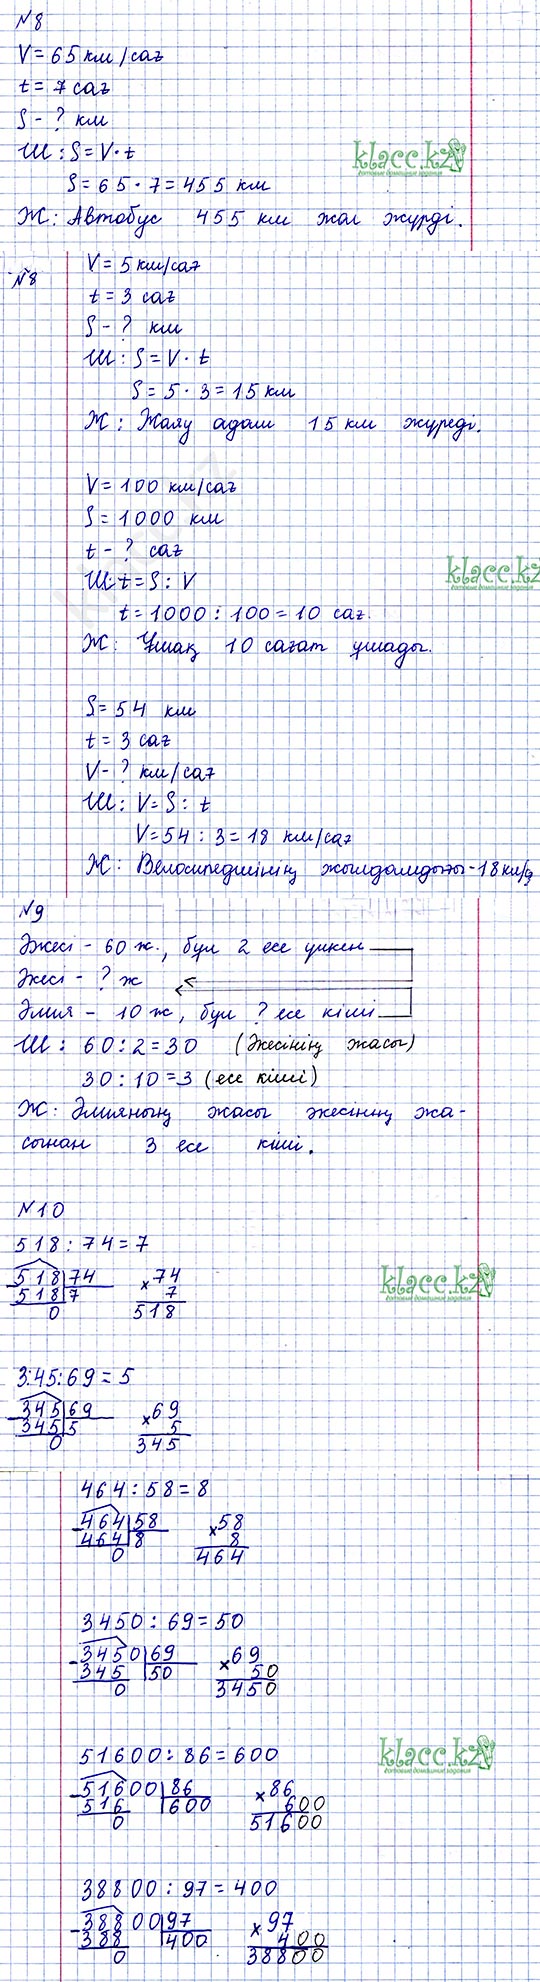 №8
V = 65 км/сағ
t = 7 сағ
S - ? км
Ш: S = V · t
S = 65 · 7 = 455 км
Ж: Автобус 455 км жол жүрді.
klacc.kz
готовые домашние задания
№8
V = 5 км/сағ
t = 3 сағ
S - ? км
Ш: S = V · t
S = 5 · 3 = 15 км
Ж: Жаяу адам 15 км жүреді.
V = 100 км/сағ
S = 1000 км
t - ? сағ
Ш: t = S : V
t = 1000 : 100 = 10 сағ.
Ж: Ұшақ 10 сағат ұшады.
klacc.kz
готовые домашние задания
S = 54 км
t = 3 сағ
V - ? км/сағ
Ш: V = S : t
V = 54 : 3 = 18 км/сағ
Ж: Велосипедшінің жылдамдығы - 18 км/с
№9
Әжесі - 60 ж., бұл 2 есе үлкен
Әкесі - ? ж
Әлия - 10 ж, бұл ? есе кіші
Ш: 60 : 2 = 30 (Әкесінің жасы)
30 : 10 = 3 (есе кіші)
Ж: Әлияның жасы әкесінің жа-
сынан 3 есе кіші.
№10
518 : 74 = 7
518 74 × 74
518 7 7
0 518
klacc.kz
готовые домашние задания
3:45:69 = 5
345 69 × 69
345 5 5
0 345
464 : 58 = 8
464 58 × 58
464 8 8
0 464
3450 : 69 = 50
3450 69 × 69
345 50 50
0 3450
51600 : 86 = 600
51600 86 × 86
516 600 600
0 51600
klacc.kz
готовые домашние задания
38800 : 97 = 400
38800 97 × 97
388 400 400
0 38800